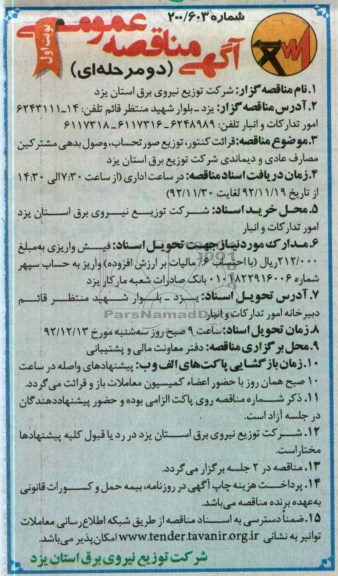 شماره ۲۰۰/۶۰۳
نوبت اول
آگهی مناقصه عمومی
(دو مرحله‌ای)
۱.نام مناقصه گزار: شرکت توزیع نیروی برق استان یزد
۲.آدرس مناقصه گزار: یزد ـ بلوار شهید منتظر قائم تلفن: ۱۴ـ۶۲۴۳۱۱۱
امور تدارکات و انبار تلفن: ۶۲۴۸۹۸۹ ـ ۶۱۱۷۳۱۶ ـ ۶۱۱۷۳۱۸
۳.موضوع مناقصه: قرائت کنتور، توزیع صورتحساب، وصول بدهی مشترکین
مصارف عادی و دیماندی شرکت توزیع برق استان یزد
۴.زمان دریافت اسناد مناقصه: در ساعت اداری (از ساعت ۷:۳۰ الی ۱۴:۳۰
از تاریخ ۹۲/۱۱/۱۹ لغایت ۹۲/۱۱/۳۰)
۵.محل خرید اسناد: شرکت توزیع نیروی برق استان یزد
امور تدارکات و انبار
۶.مدارک مورد نیاز جهت تحویل اسناد: فیش واریزی به مبلغ
۲۱۲/۰۰۰ ریال (با احتساب ۶٪ مالیات بر ارزش افزوده) واریز به حساب سپهر
شماره ۰۱۰۴۸۲۲۹۱۶۰۰۶ بانک صادرات شعبه مارکار یزد
۷.آدرس تحویل اسناد: یزد ـ بلوار شهید منتظر قائم
دبیرخانه امور تدارکات و انبار
۸.زمان تحویل اسناد: ساعت ۹ صبح روز سه‌شنبه مورخ ۹۲/۱۲/۱۳
۹.محل برگزاری مناقصه: دفتر معاونت مالی و پشتیبانی
۱۰.زمان بازگشایی پاکت‌های الف و ب: پیشنهادهای واصله در ساعت
۱۰ صبح همان روز با حضور اعضاء کمیسیون معاملات باز و قرائت می‌گردد.
۱۱. ذکر شماره مناقصه روی پاکت الزامی بوده و حضور پیشنهاددهندگان
در جلسه آزاد است.
۱۲. شرکت توزیع نیروی برق استان یزد در رد یا قبول کلیه پیشنهادها
مختار است.
۱۳. مناقصه در ۲ جلسه برگزار می‌گردد.
۱۴. پرداخت هزینه چاپ آگهی در روزنامه، بیمه حمل و کسورات قانونی
به‌عهده برنده مناقصه می‌باشد.
۱۵. ضمناً دسترسی به اسناد مناقصه از طریق شبکه اطلاع‌رسانی معاملات
توانیر به نشانی www.tender.tavanir.org.ir امکان‌پذیر می‌باشد.
شرکت توزیع نیروی برق استان یزد